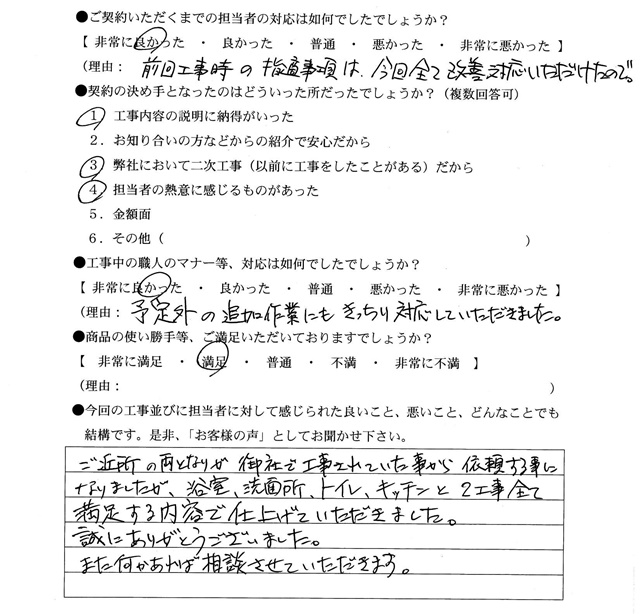 ●ご契約いただくまでの担当者の対応は如何でしたでしょうか？
【 非常に良かった ・ 良かった ・ 普通 ・ 悪かった ・ 非常に悪かった 】
（理由： 前回工事時の指適事項は、今回全て改善対応いただけたので。
●契約の決め手となったのはどういった所だったでしょうか？（複数回答可）
１．工事内容の説明に納得がいった
２．お知り合いの方などからの紹介で安心だから
３．弊社において二次工事（以前に工事をしたことがある）だから
４．担当者の熱意に感じるものがあった
５．金額面
６．その他（ ）
●工事中の職人のマナー等、対応は如何でしたでしょうか？
【 非常に良かった ・ 良かった ・ 普通 ・ 悪かった ・ 非常に悪かった 】
（理由： 予定外の追加作業にもきっちり対応していただきました。
●商品の使い勝手等、ご満足いただいておりますでしょうか？
【 非常に満足 ・ 満足 ・ 普通 ・ 不満 ・ 非常に不満 】
（理由： ）
●今回の工事並びに担当者に対して感じられた良いこと、悪いこと、どんなことでも
結構です。是非、「お客様の声」としてお聞かせ下さい。
ご近所の両となりが御社で工事されていた事から依頼する事に
なりましたが、浴室、洗面所、トイレ、キッチンと2工事全て
満足する内容で仕上げていただきました。
誠にありがとうございました。
また何かあれば相談させていただきます。